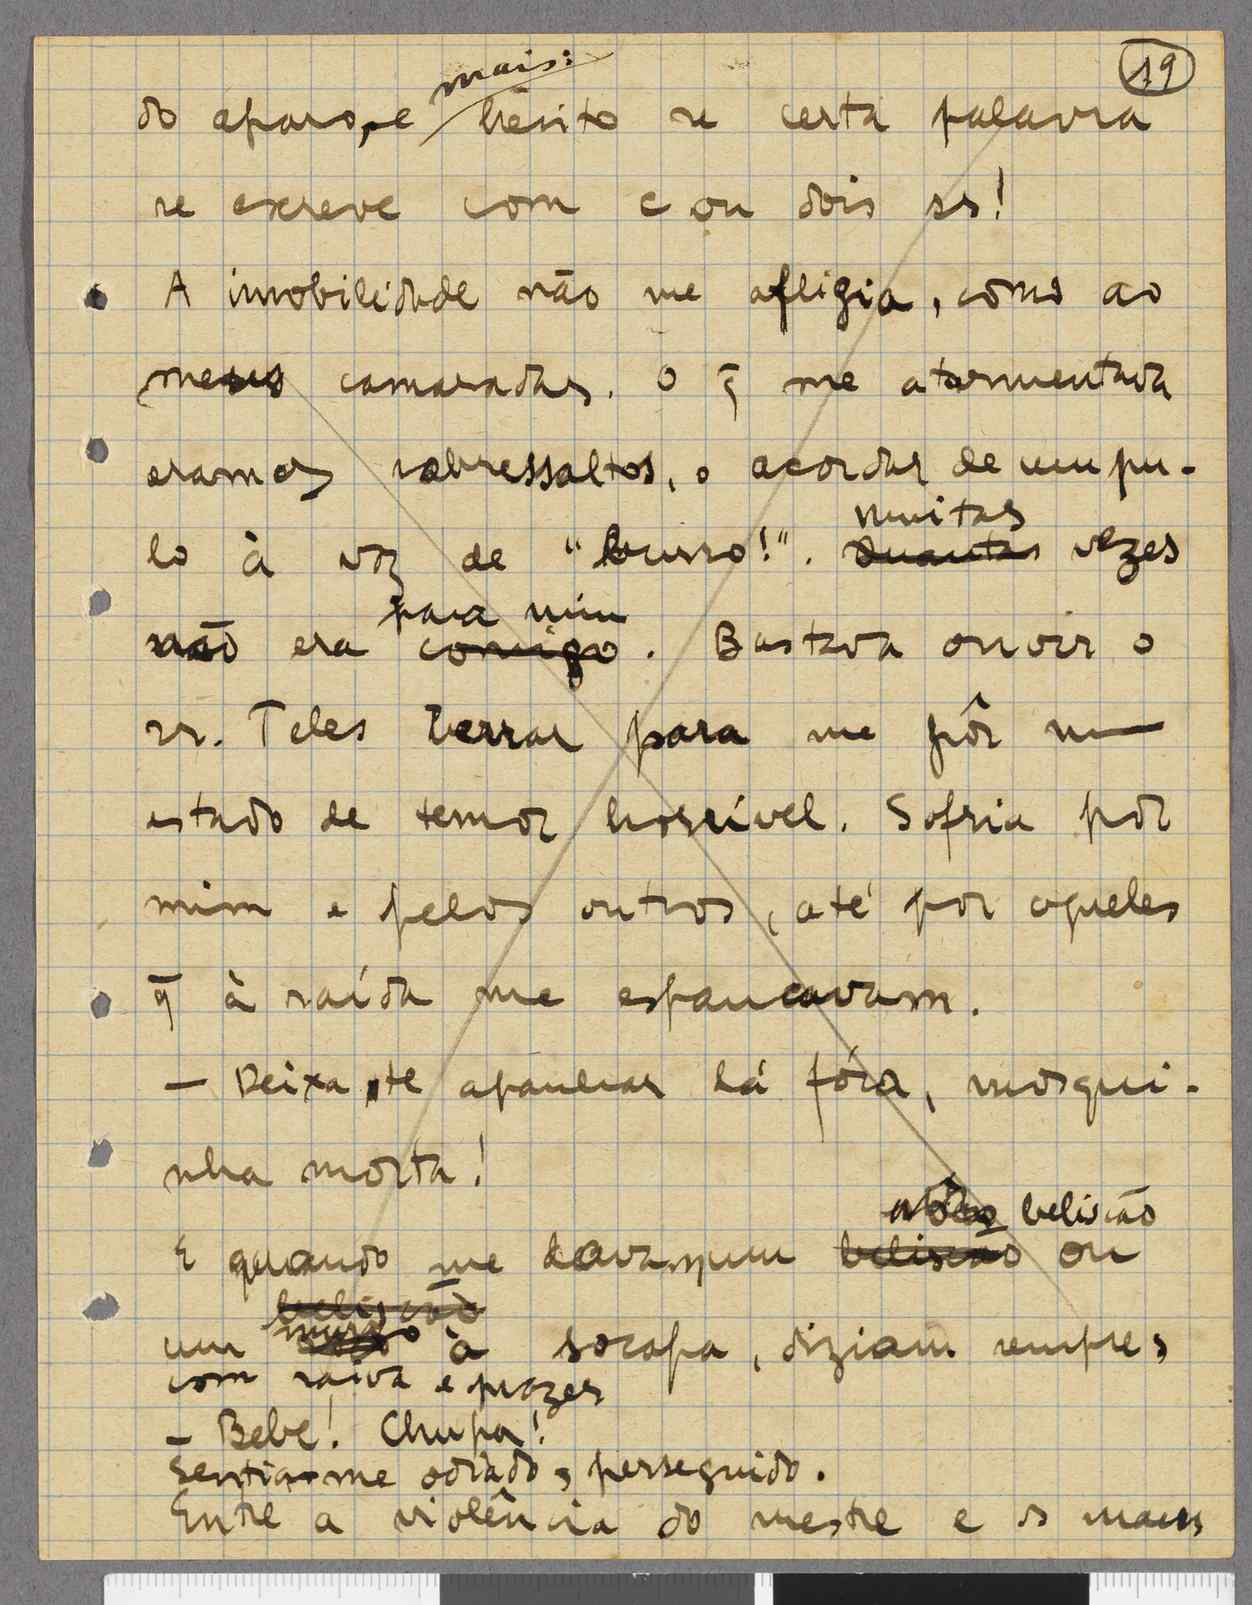 19
mais:
do aparo, e hesito se certa palavra
se escreve com c ou dois ss!
A imobilidade não me afligia, como ao
meus camaradas. O q̃ me atormentava
eram os sobressaltos, o acordar de um pu-
muitas
lo à voz de "burro!". Quantas vezes
para mim
não era comigo. Bastava ouvir o
sr. Teles berrar para me pôr num
estado de temor horrível. Sofria por
mim e pelos outros, até por aqueles
q̃ à saída me espancavam.
— Deixa-te apanhar lá fóra, mosqui-
nha morta!
beliscão
E quando me davam um beliscão ou
beliscão
murro
um à socapa, diziam sempre,
com raiva e prazer
— Bebe! Chupa!
Sentia-me odiado, perseguido.
Entre a violência do mestre e os maus